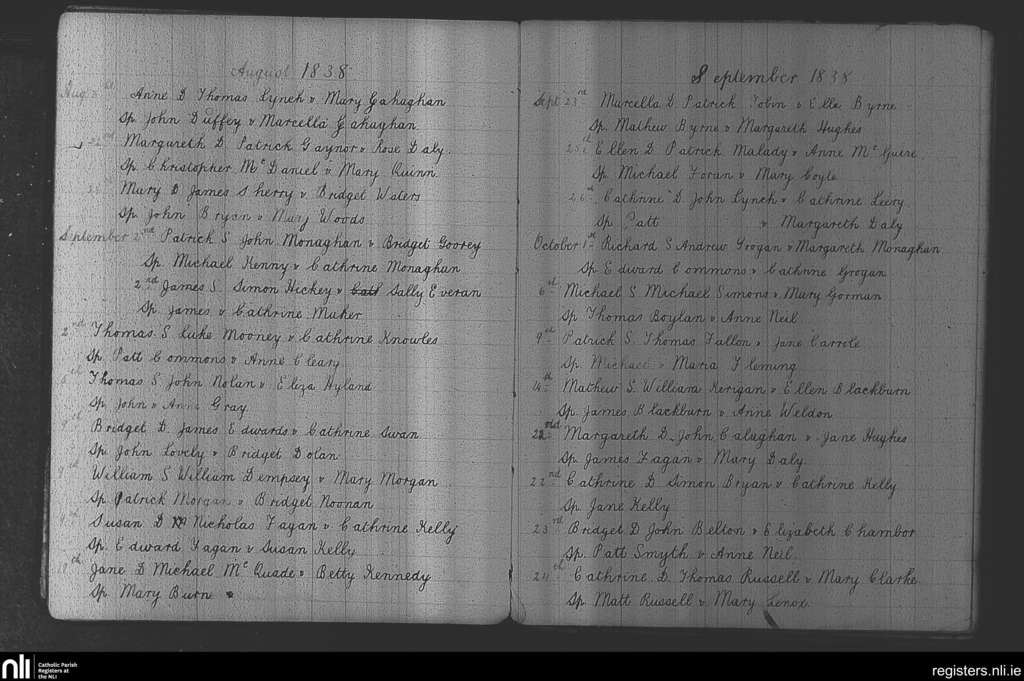 August 1838
Aug Anne D Thomas Lynch & Mary Gahaghan
Sp. John Duffey & Marcella Gahaghan
Margareth D. Patrick Gaynor & Rose Daly.
Sp. Christopher Mc Daniel & Mary Quinn.
Mary D James Sherry & Bridget Waters
Sp. John Bryan & Mary Woods
September 2nd Patrick S John Monaghan & Bridget Goorey
Sp. Michael Kenny & Cathrine Monaghan
2nd James S. Simon Hickey & Cath Sally Everan
Sp. James & Cathrine Maker
2nd Thomas S Luke Mooney & Cathrine Knowles
Sp. Patt Commons & Anne Cleary
Thomas S John Nolan & Eliza Hyland
Sp. John & Anne Gray
Bridget D. James Edwards & Cathrine Swan
Sp. John Lovely & Bridget Dolan
William S William Dempsey & Mary Morgan
Sp. Patrick Morgan & Bridget Noonan
Susan D Nicholas Fagan & Cathrine Kelly
Sp. Edward Fagan & Susan Kelly
Jane D Michael Mc Quade & Betty Kennedy
Sp Mary Burn
September 1838
Sept 23rd Marcella D Patrick Tobin & Ellen Byrne
Sp. Mathew Byrne & Margareth Hughes
Ellen D Patrick Malady & Anne Mc Guire
Sp. Michael Foran & Mary Coyle
26th Cathrine D John Lynch & Cathrine Leery
Sp. Patt & Margareth Daly
October 1st Richard S Andrew Grogan & Margareth Monaghan
Sp Edward Commons & Cathrine Grogan
6th Michael S Michael Simons & Mary Gorman
Sp Thomas Boylan & Anne Neil
9th Patrick S Thomas Fallon & Jane Carrole
Sp Michael & Maria Fleming
14th Mathew S. William Kerigan & Ellen Blackburn
Sp. James Blackburn & Anne Weldon
22nd Margareth D. John Calaghan & Jane Hughes
Sp. James Fagan & Mary Daly
22nd Cathrine D Simon Bryan & Cathrine Kelly
Sp. Jane Kelly
23rd Bridget D John Belton & Elizabeth Chambor
Sp. Patt Smyth & Anne Neil
24th Cathrine D Thomas Russell & Mary Clarke
Sp Matt Russell & Mary Lenox.
nli Catholic Parish
Registers at
the NLI
registers.nli.ie